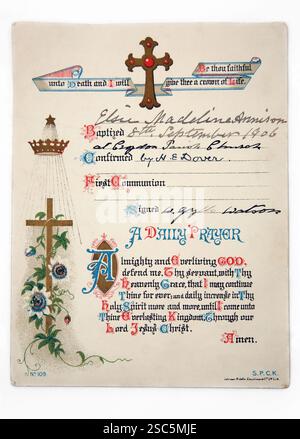 Be thou faithful
unto Death and I will give thee a crown of Life.
Elsie Madeline
Baptized 8th September 1906
at Croydon Parish Church
Confirmed by H. E. Dover.
First Communion
Signed Watson
A DAILY PRAYER
Almighty and Everliving GOD,
defend me, Thy servant, with Thy
Heavenly Grace, that I may continue
Thine for ever; and daily increase in Thy
Holy Spirit more and more, until I come unto
Thine Everlasting Kingdom, Through our
Lord Jesus Christ.
Amen.
No 109
S.P.C.K.